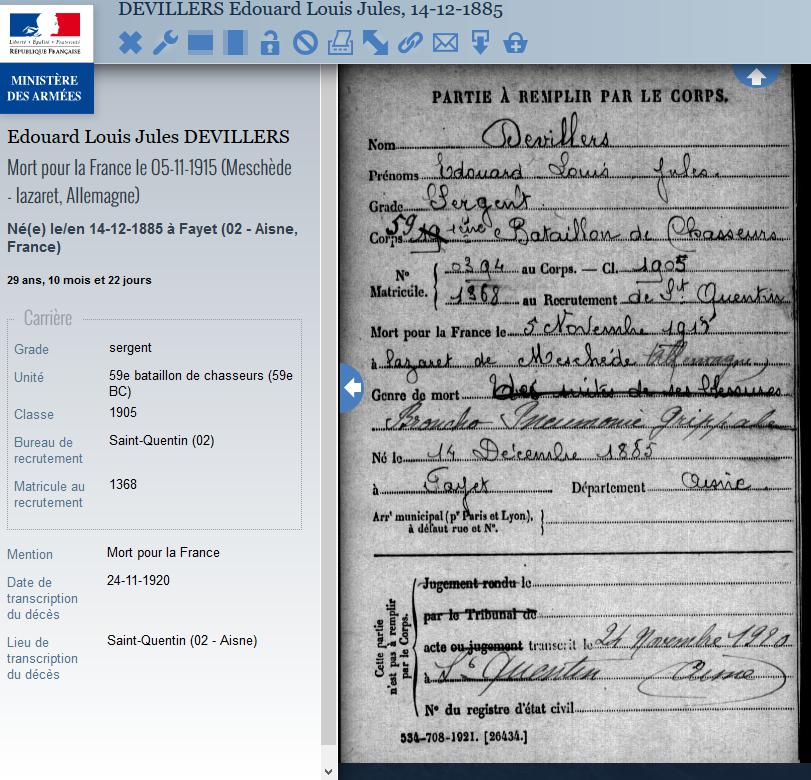 DEVILLERS Edouard Louis Jules, 14-12-1885
Liberté • Égalité • Fraternité
RÉPUBLIQUE FRANÇAISE
MINISTÈRE
DES ARMÉES
Edouard Louis Jules DEVILLERS
Mort pour la France le 05-11-1915 (Meschède
- lazaret, Allemagne)
Né(e) le/en 14-12-1885 à Fayet (02 - Aisne,
France)
29 ans, 10 mois et 22 jours
Carrière
Grade sergent
Unité 59e bataillon de chasseurs (59e
BC)
Classe 1905
Bureau de
recrutement Saint-Quentin (02)
Matricule au
recrutement 1368
Mention Mort pour la France
Date de
transcription
du décès 24-11-1920
Lieu de
transcription
du décès Saint-Quentin (02 - Aisne)
PARTIE À REMPLIR PAR LE CORPS.
Nom Devillers
Prénoms Edouard Louis Jules.
Grade Sergent
Corps 59 ième Bataillon de Chasseurs
N° Matricule. { 0394 au Corps. — Cl. 1905
1368 au Recrutement de St Quentin
Mort pour la France le 5 Novembre 1915
à lazaret de Meschède Allemagne
Genre de mort des suites de ses blessures
Broncho Pneumonie Grippale
Né le 14 Décembre 1885
à Fayet Département Aisne
Arrt municipal (pr Paris et Lyon),
à défaut rue et N°. }
Cette partie
n'est pas à remplir
par le Corps.
Jugement rendu le
par le Tribunal de
acte ou jugement transcrit le 24 Novembre 1920
à St Quentin Aisne
N° du registre d'état civil
534-708-1921. [26434.]